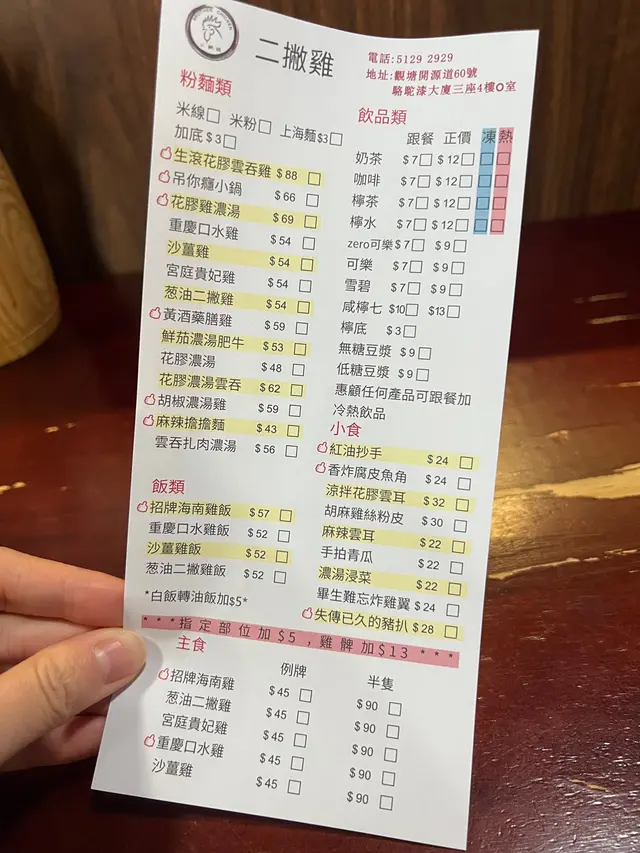 二撇雞
電話:5129 2929
地址:觀塘開源道60號
駱駝漆大廈三座4樓O室
粉麵類
米線□ 米粉□ 上海麵$3□
加底$3□
生滾花膠雲吞雞 $88 □
吊你癮小鍋 $66 □
花膠雞濃湯 $69 □
重慶口水雞 $54 □
沙薑雞 $54 □
宮庭貴妃雞 $54 □
葱油二撇雞 $54 □
黃酒藥膳雞 $59 □
鮮茄濃湯肥牛 $53 □
花膠濃湯 $48 □
花膠濃湯雲吞 $62 □
胡椒濃湯雞 $59 □
麻辣擔擔麵 $43 □
雲吞扎肉濃湯 $56 □
飯類
招牌海南雞飯 $57 □
重慶口水雞飯 $52 □
沙薑雞飯 $52 □
葱油二撇雞飯 $52 □
*白飯轉油飯加$5*
飲品類
跟餐 正價 凍 熱
奶茶 $7□ $12□ □ □
咖啡 $7□ $12□ □ □
檸茶 $7□ $12□ □ □
檸水 $7□ $12□ □ □
zero可樂 $7□ $9□
可樂 $7□ $9□
雪碧 $7□ $9□
咸檸七 $10□ $13□
檸底 $3□
無糖豆漿 $9□
低糖豆漿 $9□
惠顧任何產品可跟餐加
冷熱飲品
小食
紅油抄手 $24 □
香炸腐皮魚角 $24 □
涼拌花膠雲耳 $32 □
胡麻雞絲粉皮 $30 □
麻辣雲耳 $22 □
手拍青瓜 $22 □
濃湯浸菜 $22 □
畢生難忘炸雞翼 $24 □
失傳已久的豬扒 $28 □
***指定部位加$5,雞髀加$13***
主食 例牌 半隻
招牌海南雞 $45 □ $90 □
葱油二撇雞 $45 □ $90 □
宮庭貴妃雞 $45 □ $90 □
重慶口水雞 $45 □ $90 □
沙薑雞 $45 □ $90 □